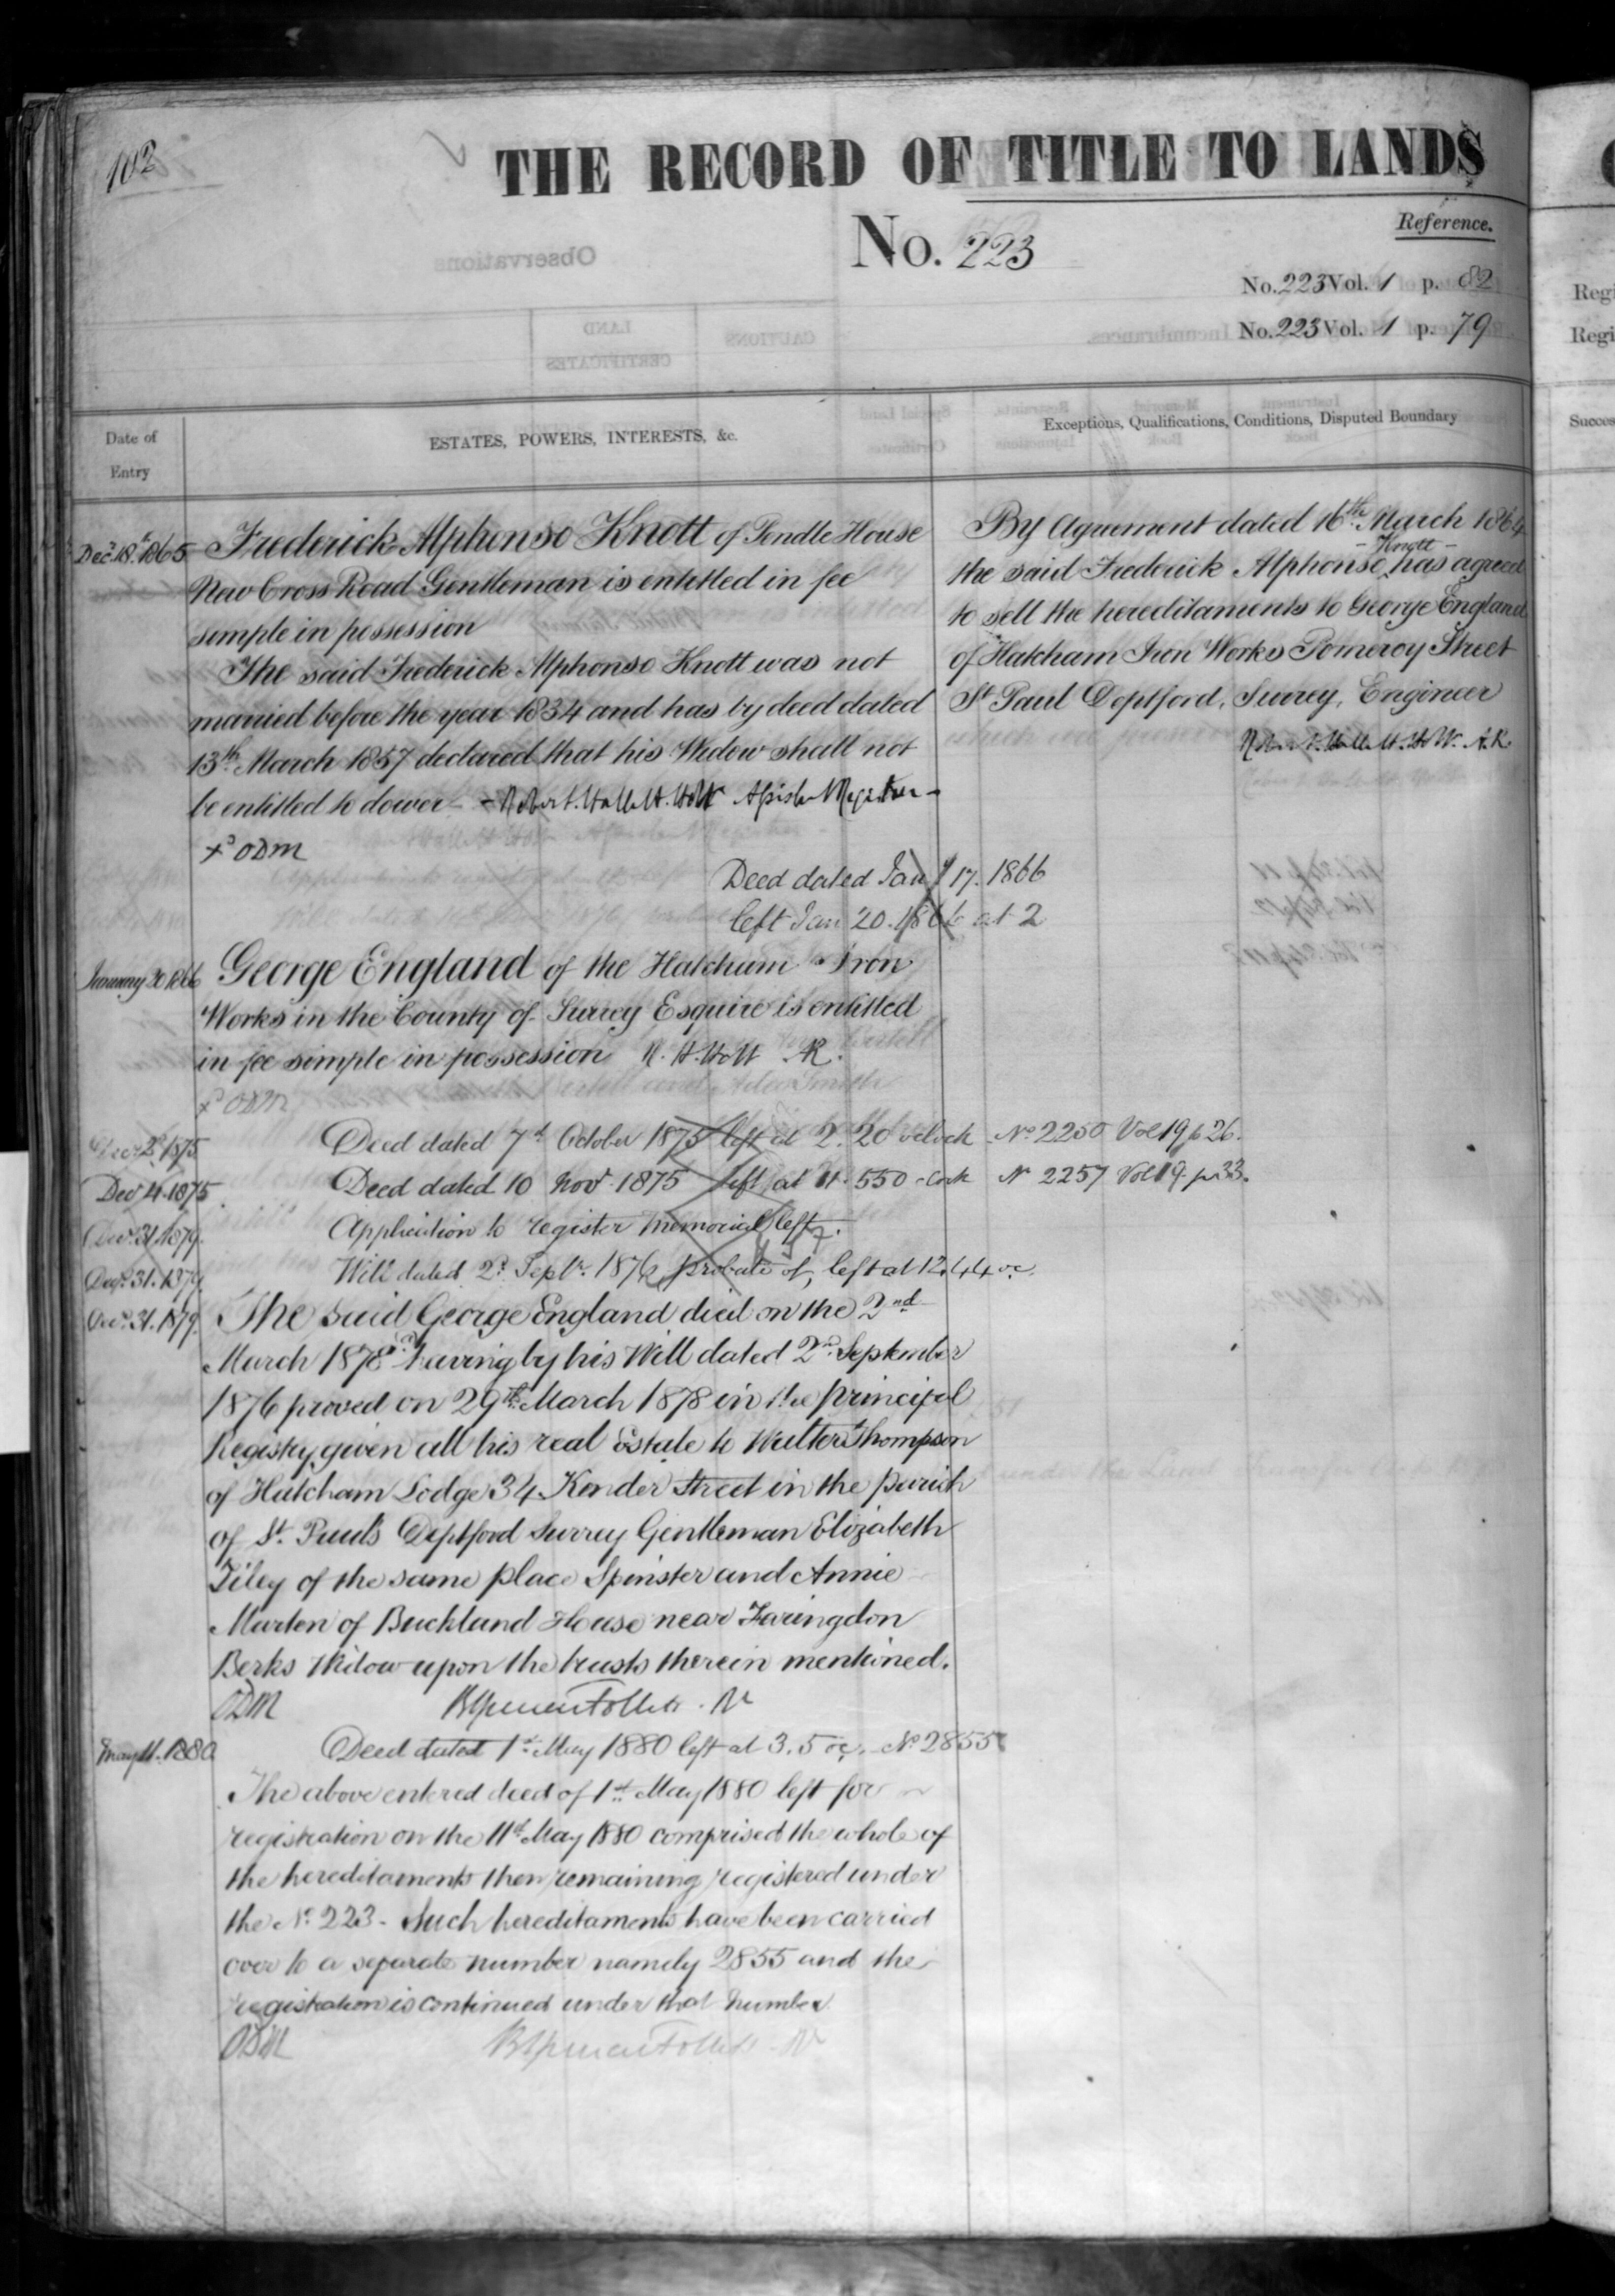 102
THE RECORD OF TITLE TO LANDS
No. 223
Reference.
No. 223 Vol. 1 p. 82
No. 223 Vol. 1 p. 79
Date of
Entry
ESTATES, POWERS, INTERESTS, &c.
Exceptions, Qualifications, Conditions, Disputed Boundary
Decr. 18th 1865
Frederick Alphonso Knott of Pendle House
New Cross Road Gentleman is entitled in fee
simple in possession
The said Frederick Alphonso Knott was not
married before the year 1834 and has by deed dated
13th March 1857 declared that his Widow shall not
be entitled to dower - Robert. Hallett. Holt
ODM
By Agreement dated 16th March 1864
- Knott -
the said Frederick Alphonso has agreed
to sell the hereditaments to George England
of Hatcham Iron Works Pomeroy Street
St Paul Deptford, Surrey, Engineer
A.R.
Deed dated Jany 17. 1866
left Jan 20. 1866 at 2
January 20 1866
George England of the Hatcham Iron
Works in the County of Surrey Esquire is entitled
in fee simple in possession R. H. Holt AR.
ODM
Decr 2d 1875
Deed dated 7th October 1875 left at 2.20 oclock No 2250 Vol 19 p 26.
Decr 4. 1875
Deed dated 10 Novr 1875 left at No 2257 Vol 19. p. 33.
Decr. 31. 1879.
Application to register memorial left.
Decr. 31. 1879
Will dated 2d Septr. 1876, probate of, left at 12.44 oc.
Decr. 31. 1879.
The said George England died on the 2nd
March 1878 having by his Will dated 2nd September
1876 proved on 29th March 1878 in the principal
Registry, given all his real Estate to Walter Thompson
of Hatcham Lodge 34 Kender Street in the parish
of St. Pauls Deptford Surrey Gentleman Elizabeth
Tiley of the same place Spinster and Annie
Marten of Buckland House near Faringdon
Berks Widow upon the trusts therein mentioned.
ODM
May 11. 1880
Deed dated 1st May 1880 left at 3.5 oc. No 2855
The above entered deed of 1st May 1880 left for
registration on the 11th May 1880 comprised the whole of
the hereditaments then remaining registered under
the No 223 - Such hereditaments have been carried
over to a separate number namely 2855 and the
registration is continued under that number
ODM
Regi
Regi
Succes